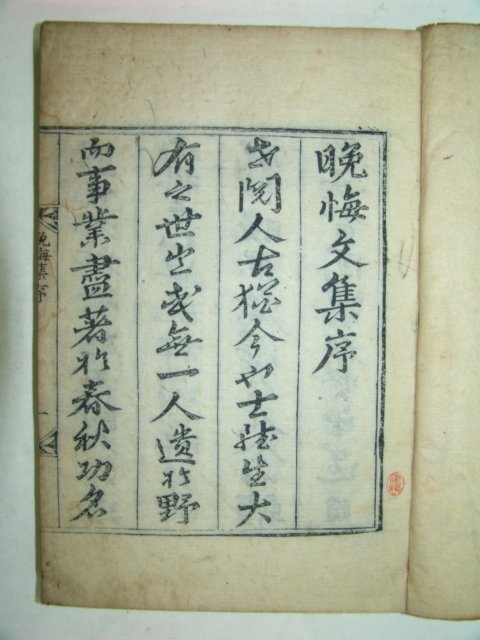 晩悔文集序
閱人古猶今也士雖生大
有之世或無一人遺於野
而事業盡著於春秋功名
晩悔集序
一